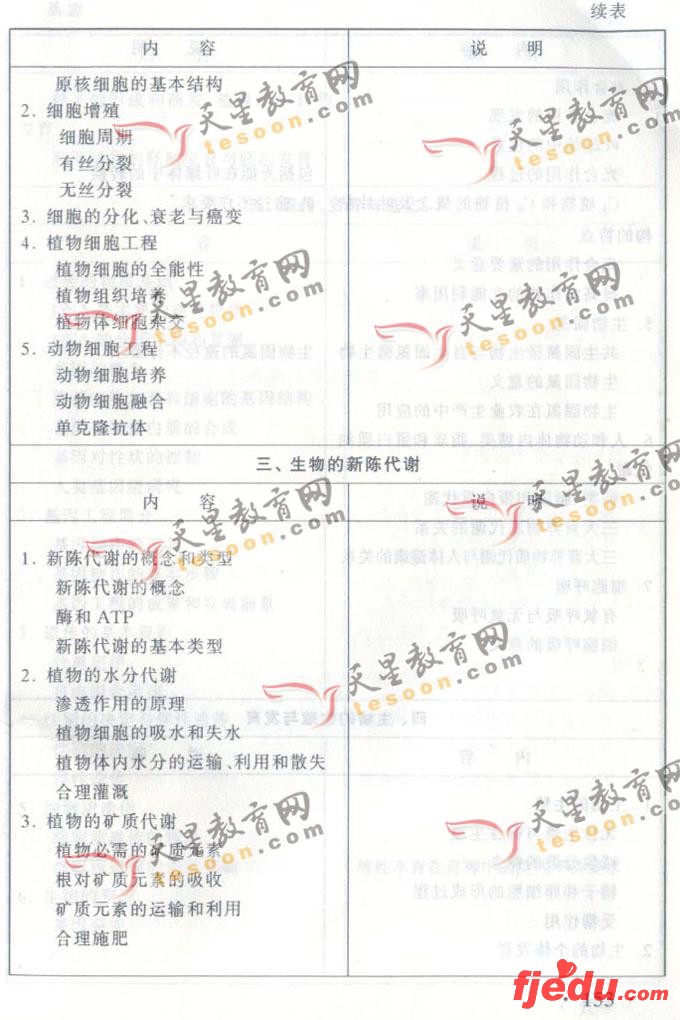 续表
内 容 说 明
原核细胞的基本结构
2. 细胞增殖
细胞周期
有丝分裂
无丝分裂
3. 细胞的分化、衰老与癌变
4. 植物细胞工程
植物细胞的全能性
植物组织培养
植物体细胞杂交
5. 动物细胞工程
动物细胞培养
动物细胞融合
单克隆抗体
三、生物的新陈代谢
内 容 说 明
1. 新陈代谢的概念和类型
新陈代谢的概念
酶和 ATP
新陈代谢的基本类型
2. 植物的水分代谢
渗透作用的原理
植物细胞的吸水和失水
植物体内水分的运输、利用和散失
合理灌溉
3. 植物的矿质代谢
植物必需的矿质元素
根对矿质元素的吸收
矿质元素的运输和利用
合理施肥
· 153 ·
天星教育网
tesoon.com
天星教育网
tesoon.com
天星教育网
tesoon.com
天星教育网
tesoon.com
天星教育网
tesoon.com
天星教育网
tesoon.com
天星教育网
tesoon.com
天星教育网
tesoon.com
fjedu.com